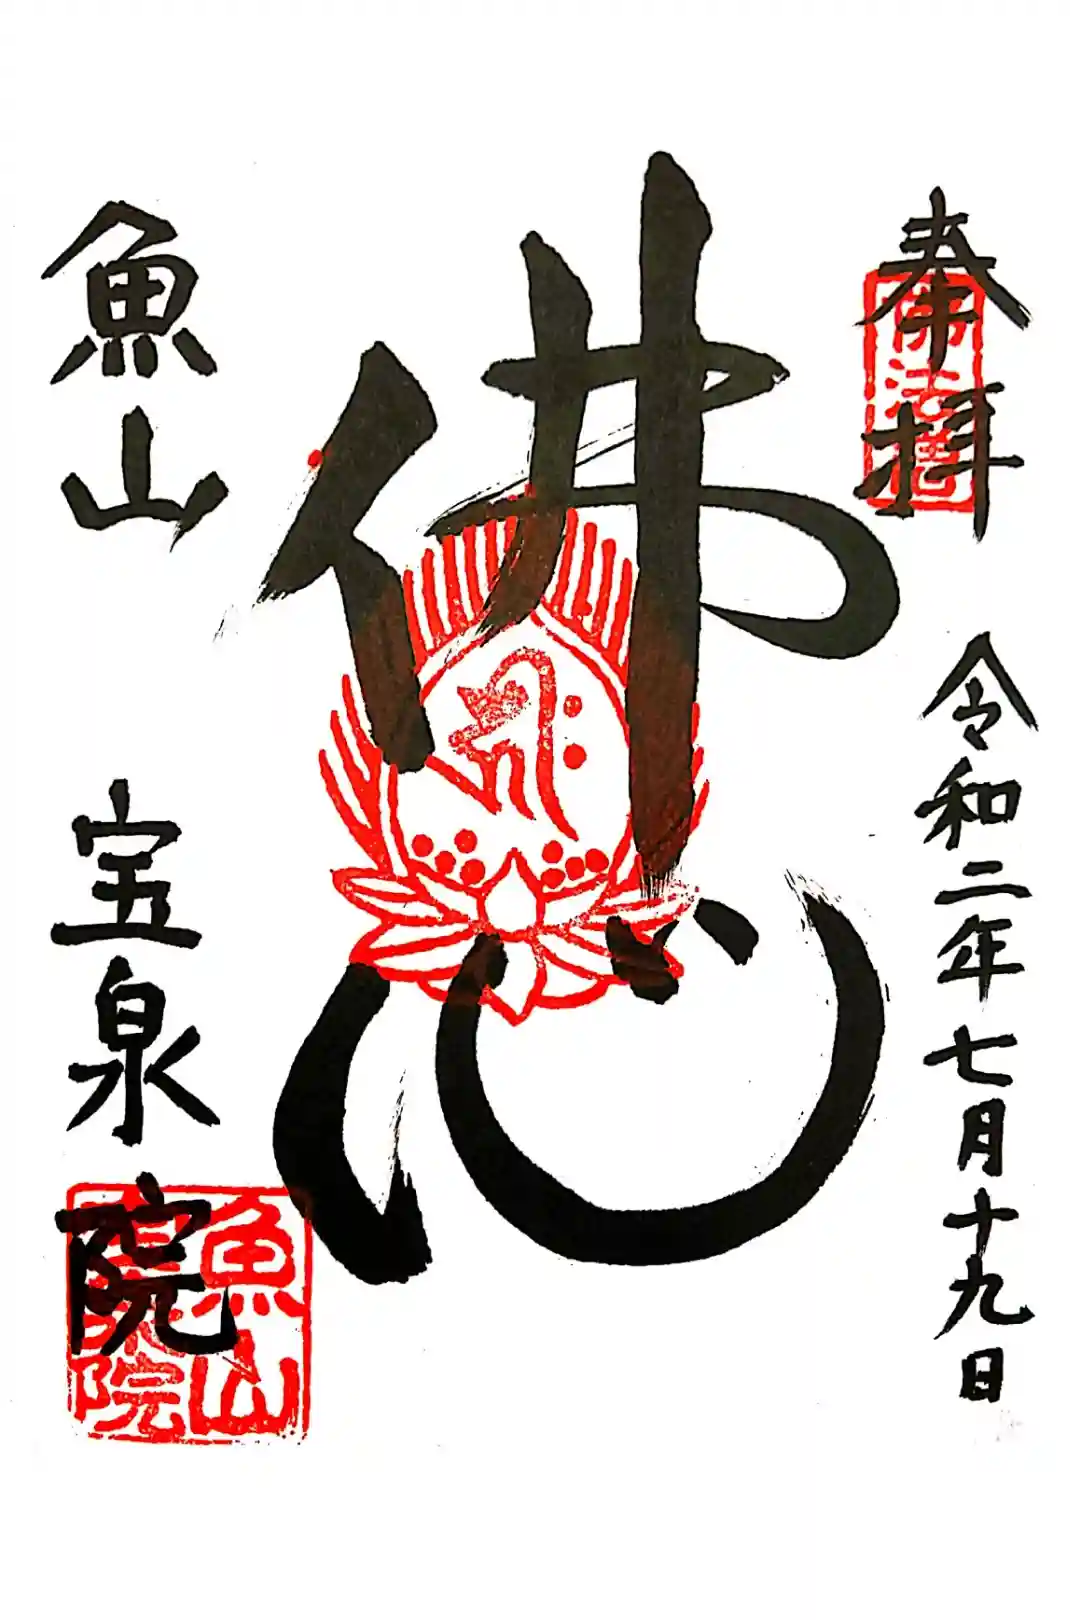 奉拝
佛法僧
令和二年七月十九日
佛心
魚山
宝泉院
魚山